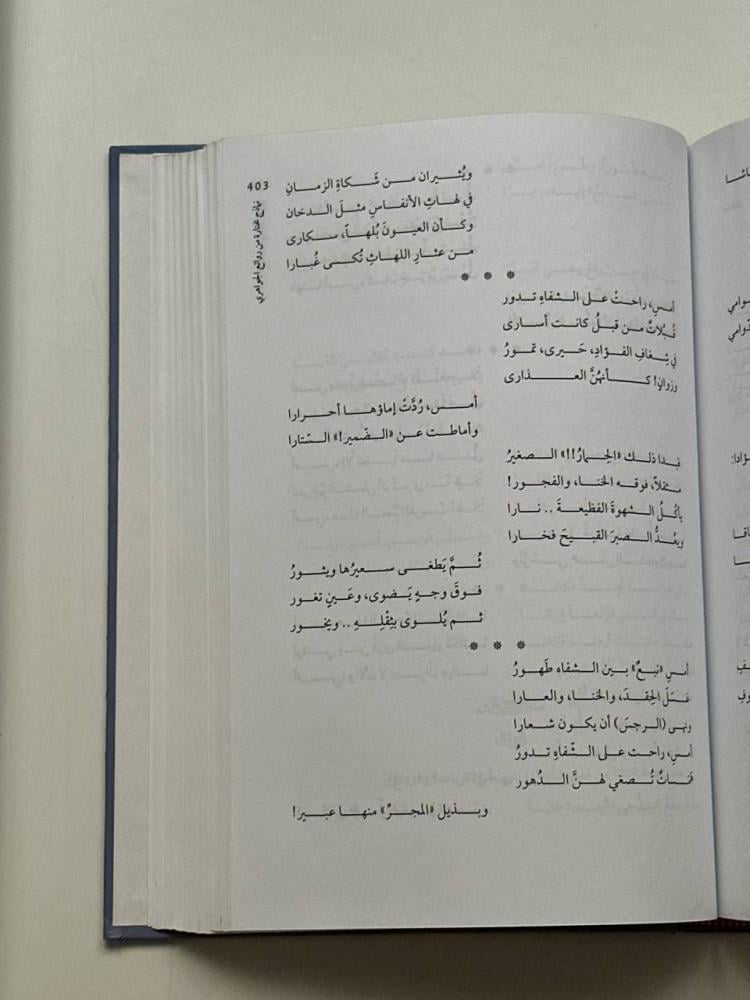 403
نماذج مختارة من روائع الجواهري
ويُثيران من شَكاةِ الزمانِ
في لهاثِ الأنفاسِ مثلَ الدخان
وكأن العيونَ بُلهاً، سكارى
من عثارِ اللهاثِ تُكسى غُبارا
* * *
أمسِ، راحتْ على الشفاهِ تدور
قُبلاتٌ من قبلُ كانت أسارى
في شِغافِ الفؤادِ، حَيرى، تمورُ
وزوانٍ! كأنهُنَّ العذارى
أمسِ، رُدَّتْ إماؤها أحرارا
وأماطت عن «الضّمير!» السّتارا
فبدا ذلك «الحِمارُ!!» الصغيرُ
مثقلاً، فوقه الخنا، والفجور!
يأكلُ الشهوةَ الفظيعةَ .. نارا
ويعُدُّ الصبرَ القبيحَ فخارا
ثُمَّ يَطغى سعيرُها ويثورُ
فوقَ وجهٍ يَضوى، وعَينٍ تغور
ثم يُلوى بثِقْلِهِ .. ويخور
* * *
أمسِ «نبعٌ» بين الشفاه طَهورُ
غسَلَ الحِقدَ، والخنا، والعارا
ونهى (الرجسَ) أن يكون شعارا
أمسِ، راحت على الشّفاهِ تدورُ
نَسماتٌ تُصغي لهنَّ الدُهور
وبذيل «المجرِّ» منها عبير!